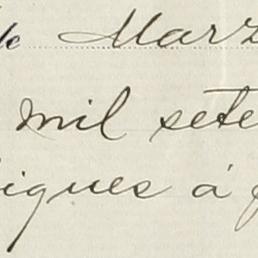 de Marz
mil sete
igues á